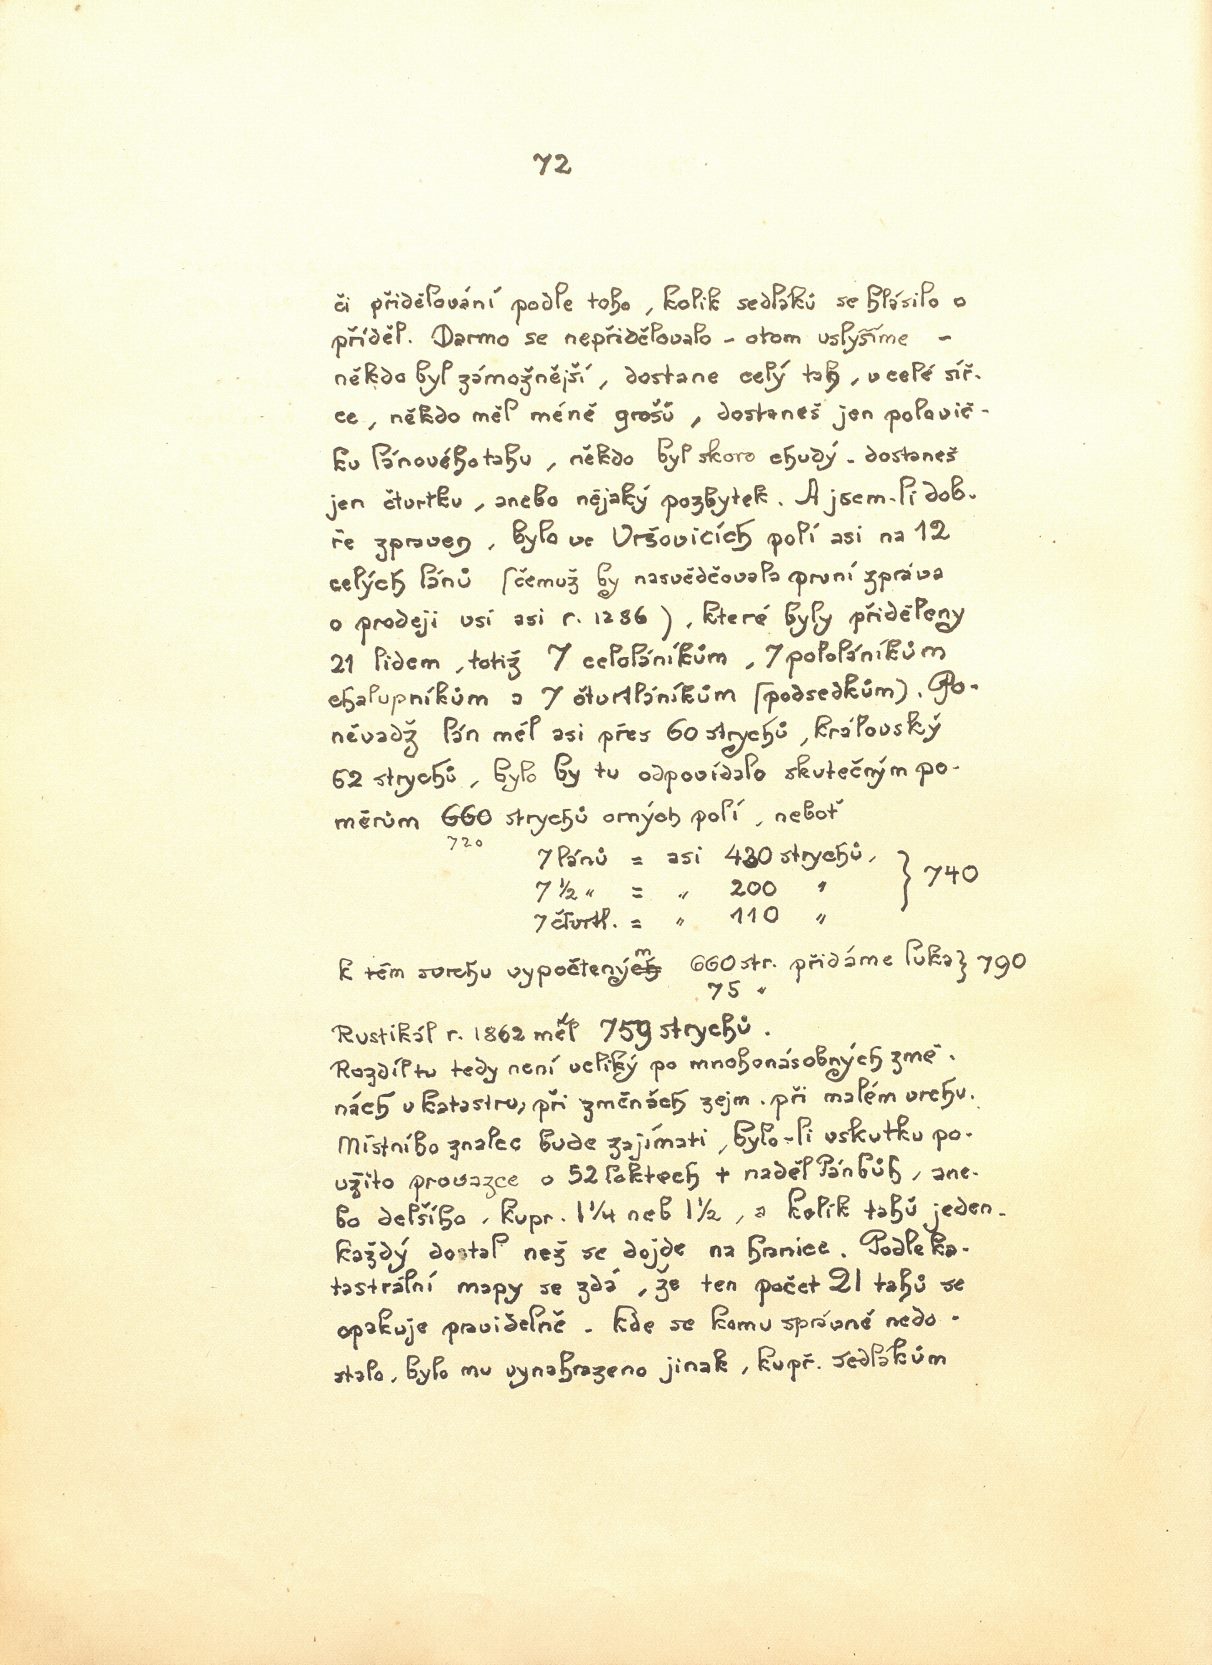 72
či přidělování podle toho, kolik sedláků se hlásilo o
příděl. Darmo se nepřidělovalo - otom uslyšíme -
někdo byl zámožnější, dostane celý tah, v celé šíř-
ce, někdo měl méně grošů, dostaneš jen polovič-
ku lánového tahu, někdo byl skoro chudý - dostaneš
jen čtvrtku, anebo nějaký pozbytek. A jsem-li dob-
ře zpraven, bylo ve Vršovicích polí asi na 12
celých lánů (čemuž by nasvědčovala první zpráva
o prodeji vsi asi r. 1286), které byly přiděleny
21 lidem, totiž 7 celoláníkům, 7 pololáníkům
chalupníkům a 7 čtvrtláníkům (podsedkům). Po-
něvadž lán měl asi přes 60 strychů, královský
62 strychů, bylo by tu odpovídalo skutečným po-
měrům 660 strychů orných polí, neboť
720
7 lánů = asi 430 strychů,
7 ½ „ = „ 200 „ } 740
7 čtvrtl. = „ 110 „
k těm svrchu vypočteným 660 str. přidáme luka } 790
75 „
Rustikál r. 1862 měl 759 strychů.
Rozdíl tu tedy není veliký po mnohonásobných změ-
nách v katastru, při změnách zejm. při malém vrchu.
Místního znalce bude zajímati, bylo-li vskutku po-
užito provazce o 52 loktech + naděl Pánbůh, ane-
bo delšího, kupr. 1¼ neb 1½, a kolik tahů jeden-
každý dostal než se dojde na hranice. Podle ka-
tastrální mapy se zdá, že ten počet 21 tahů se
opakuje pravidelně - kde se komu správně nedo-
stalo, bylo mu vynahrazeno jinak, kupř. sedlákům